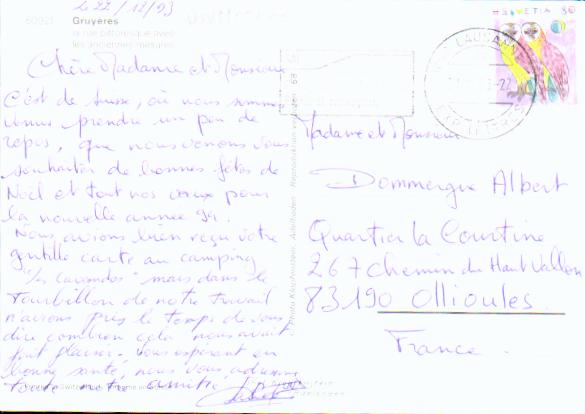 le 22/12/93
60921 Gruyères
la rue pittoresque avec
les anciennes mesures
HELVETIA 80
LAUSANNE
Chère Madame et Monsieur
C'est de Suisse, où nous sommes
venus prendre un peu de
repos, que nous venons vous
souhaiter de bonnes fêtes de
Noël et tout nos vœux pour
la nouvelle année 94.
Nous avions bien reçu votre
gentille carte au camping
"les lavandes" mais dans le
tourbillon de notre travail
n'avions pris le temps de vous
dire combien cela nous avait
fait plaisir. Vous espérant en
bonne santé, nous vous adressons
toute notre amitié
Madame et Monsieur
Dommergue Albert
Quartier la Courtine
267 chemin du Haut Vallon
83190 Ollioules.
France.